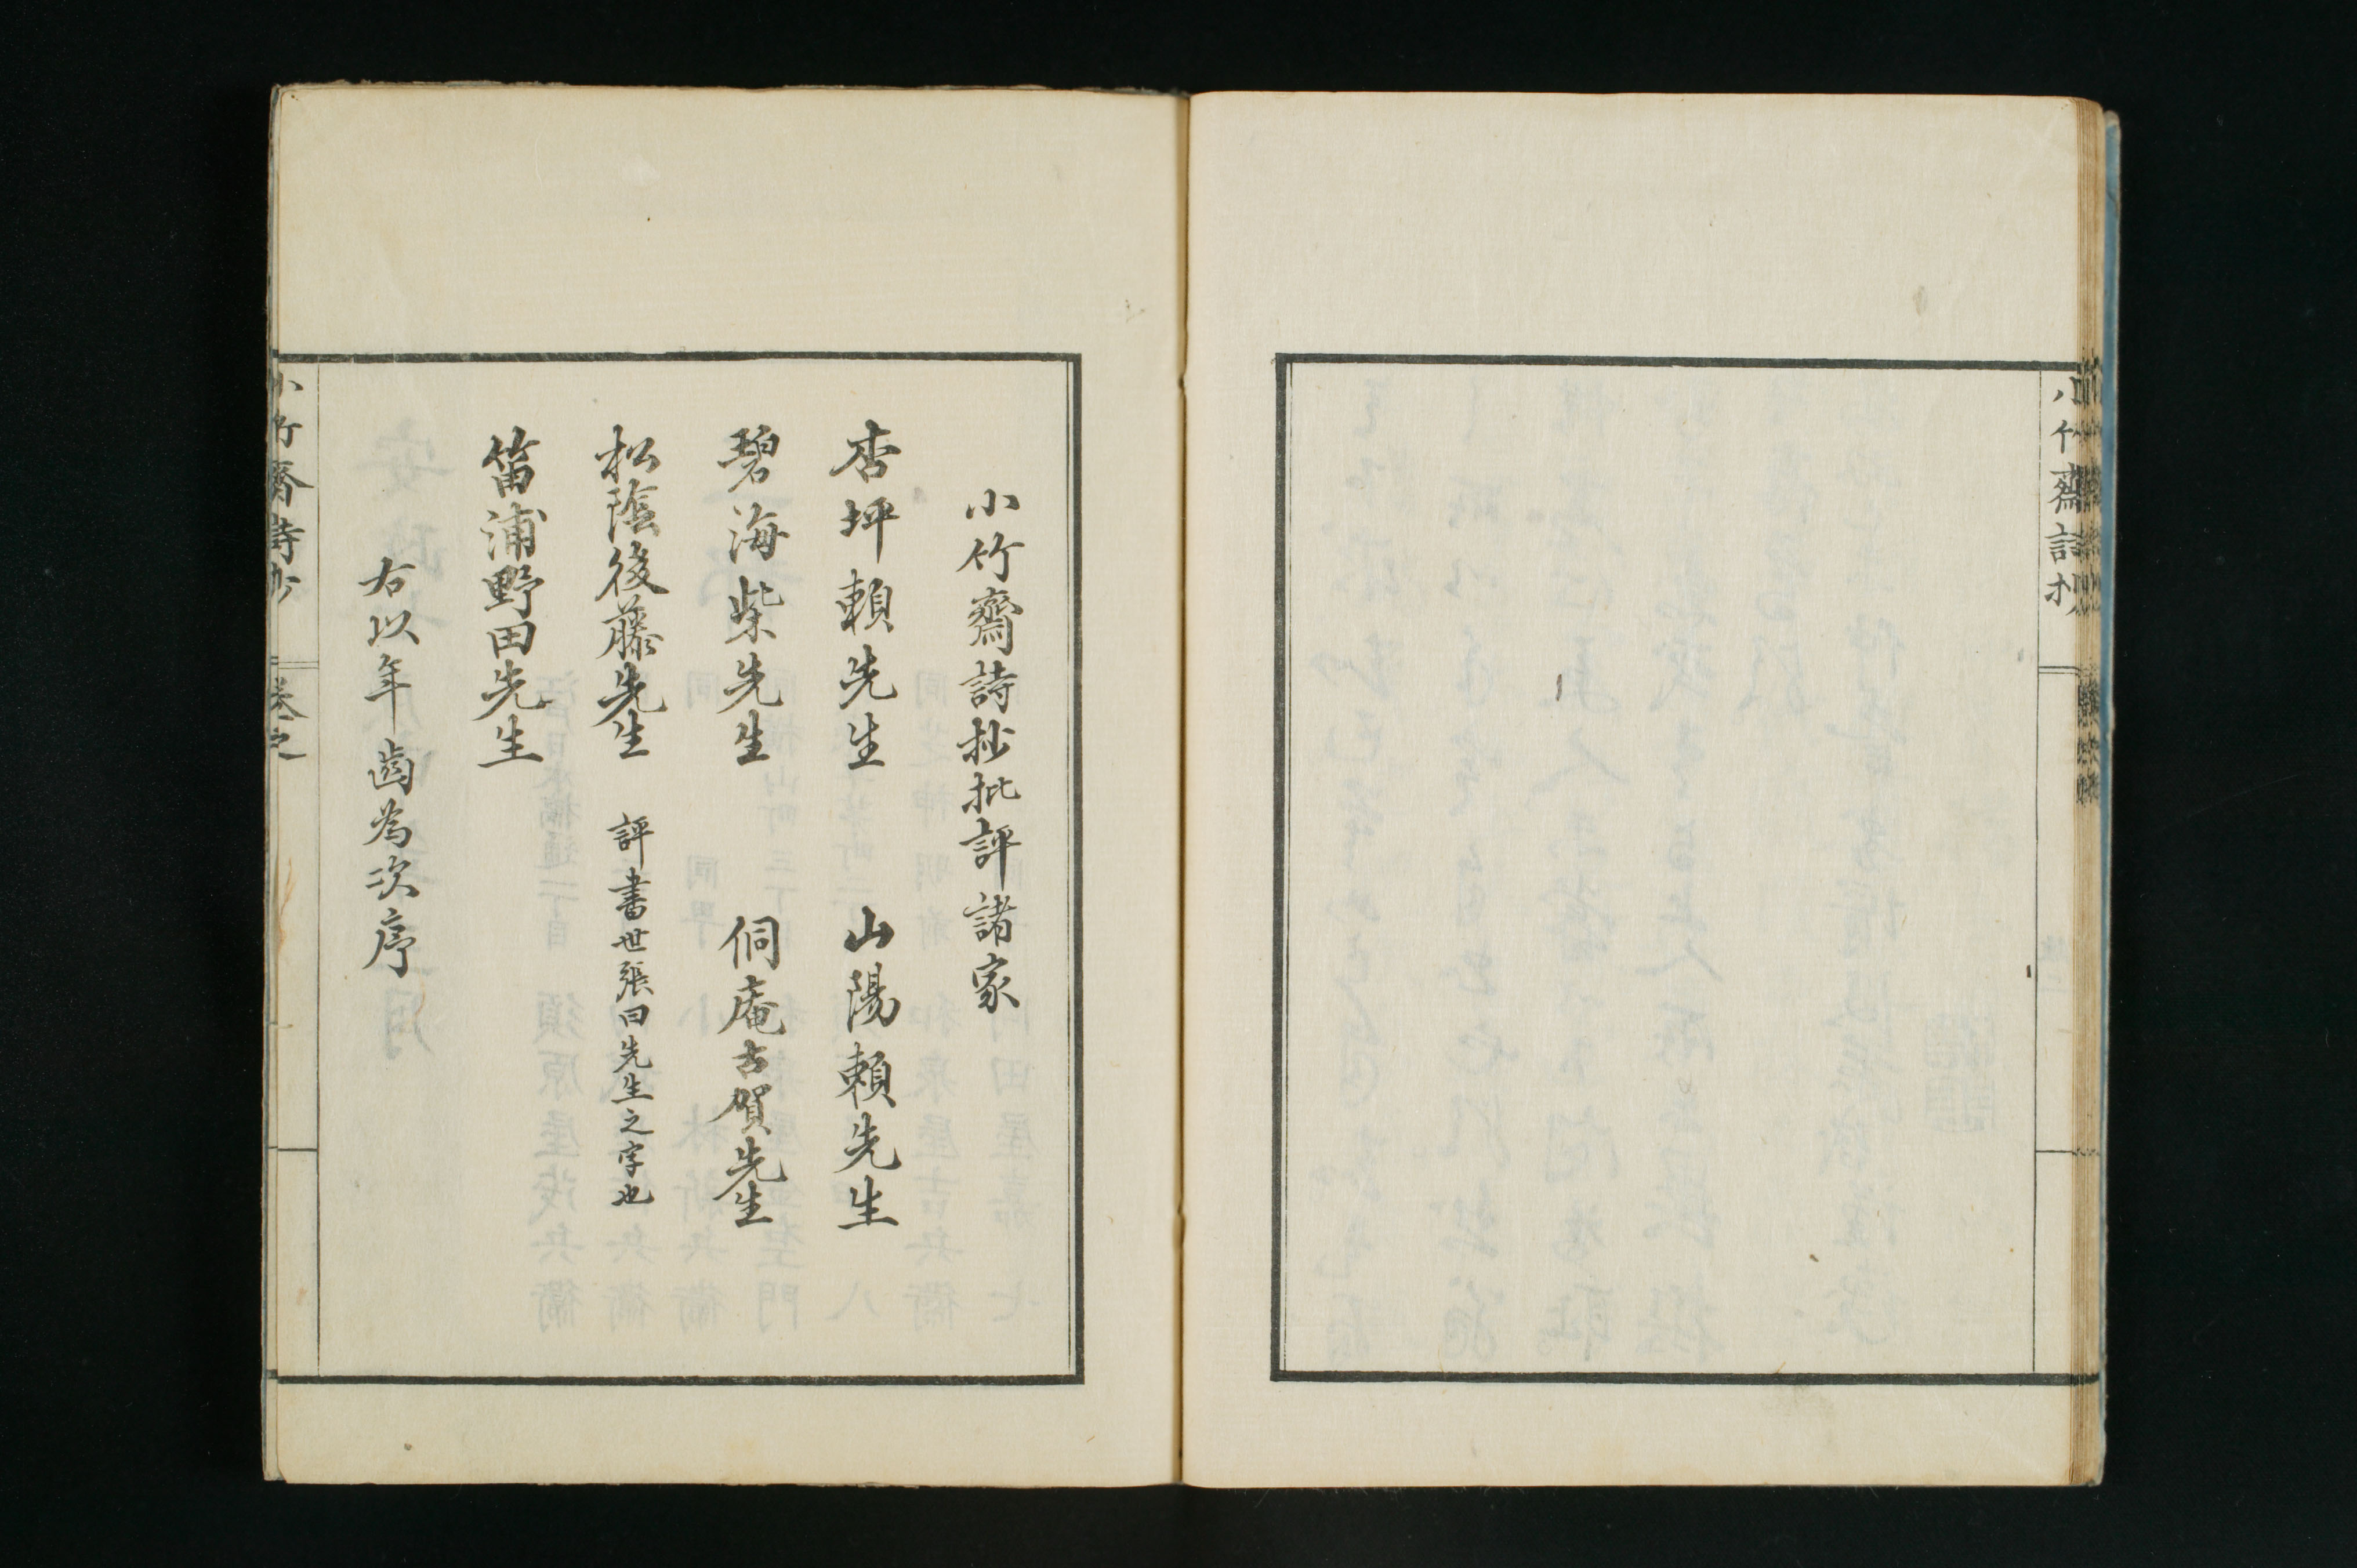 小竹齋詩抄
小竹齋詩抄批評諸家
杏坪賴先生　山陽賴先生
碧海柴先生　侗庵古賀先生
松陰後藤先生　評書世張曰先生之字也
笛浦野田先生
右以年齒為次序
小竹齋詩抄　卷之